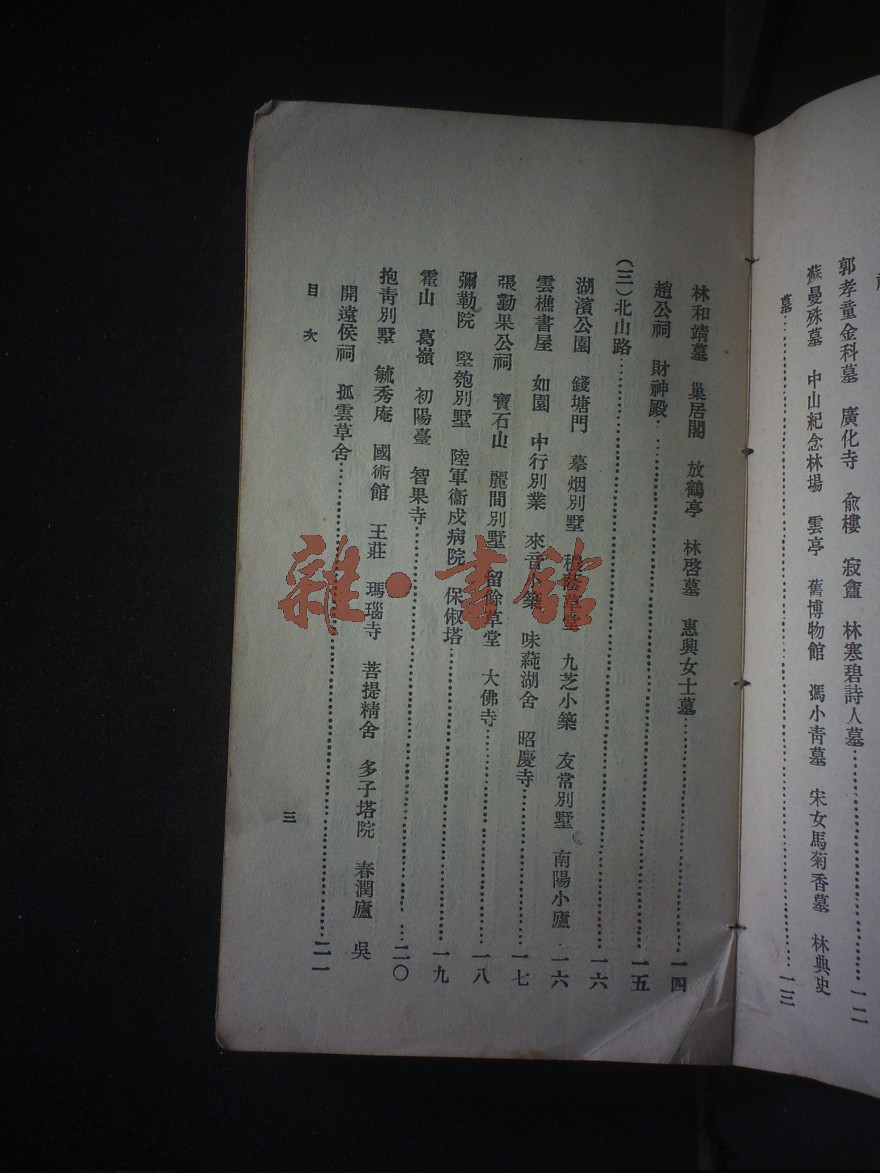 郭孝童金科墓　廣化寺　俞樓　寂盦　林寒碧詩人墓………………一二
蘇曼殊墓　中山紀念林場　雲亭　舊博物館　馮小青墓　宋女馬菊香墓　林典史
墓………………一三
林和靖墓　巢居閣　放鶴亭　林啓墓　惠興女士墓………………一四
趙公祠　財神殿………………一五
(三)北山路………………一六
湖濱公園　錢塘門　摹烟別墅　草堂　九芝小築　友常別墅　南陽小廬　一六
雲樵書屋　如園　中行別業　來音小築　味蒓湖舍　昭慶寺………………一七
張勤果公祠　寶石山　麗間別墅　留餘草堂　大佛寺………………一八
彌勒院　堅匏別墅　陸軍衞戍病院　保俶塔………………一九
霍山　葛嶺　初陽臺　智果寺………………二〇
抱青別墅　毓秀庵　國術館　王莊　瑪瑙寺　菩提精舍　多子塔院　春潤廬　吳
開遠侯祠　孤雲草舍………………二一
目次
三
雜·書館